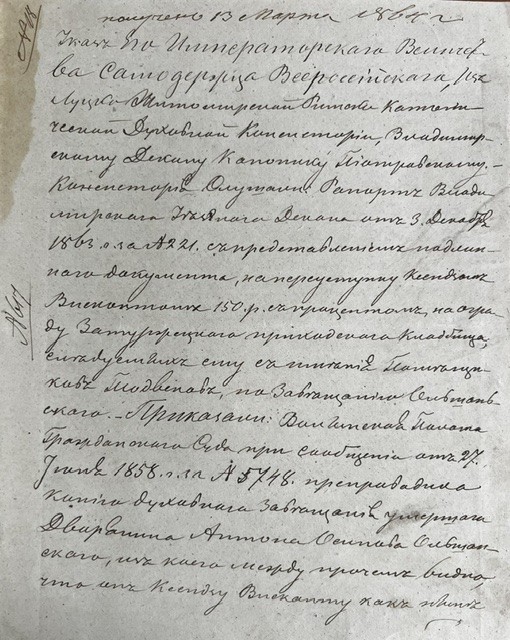 получено 13 Марта 1864 г
№ 18
Указъ Его Императорскаго Величест-
ва Самодержца Всероссійскаго, изъ
Луцко Житомирской Римско Католи-
ческой Духовной Консисторіи, Владимир-
скому Декану Канонику Піотровскому.-
Консисторія Слушали: Рапортъ Влади-
мирскаго Декана отъ 3. Декабря
1863. г. за № 221. съ представленіемъ подлин-
наго документа, на переуступку Ксендзомъ
150. р. съ процентомъ, на огра-
ду Затурцецкаго приходскаго Кладбища,
слѣдуемыхъ ему съ имѣнія Помѣщи-
ковъ по завѣщанію Ольшан-
скаго.- Приказали: Волынская Палата
Гражданскаго Суда при сообщеніи отъ 27.
1858. г. за № 5748. препроводила
копію духовнаго завѣщанія умершаго
Дворянина Антона Осипова Ольшан-
скаго, изъ коего между прочимъ видно,
что онъ Ксендзу Висконту какъ
№ 647